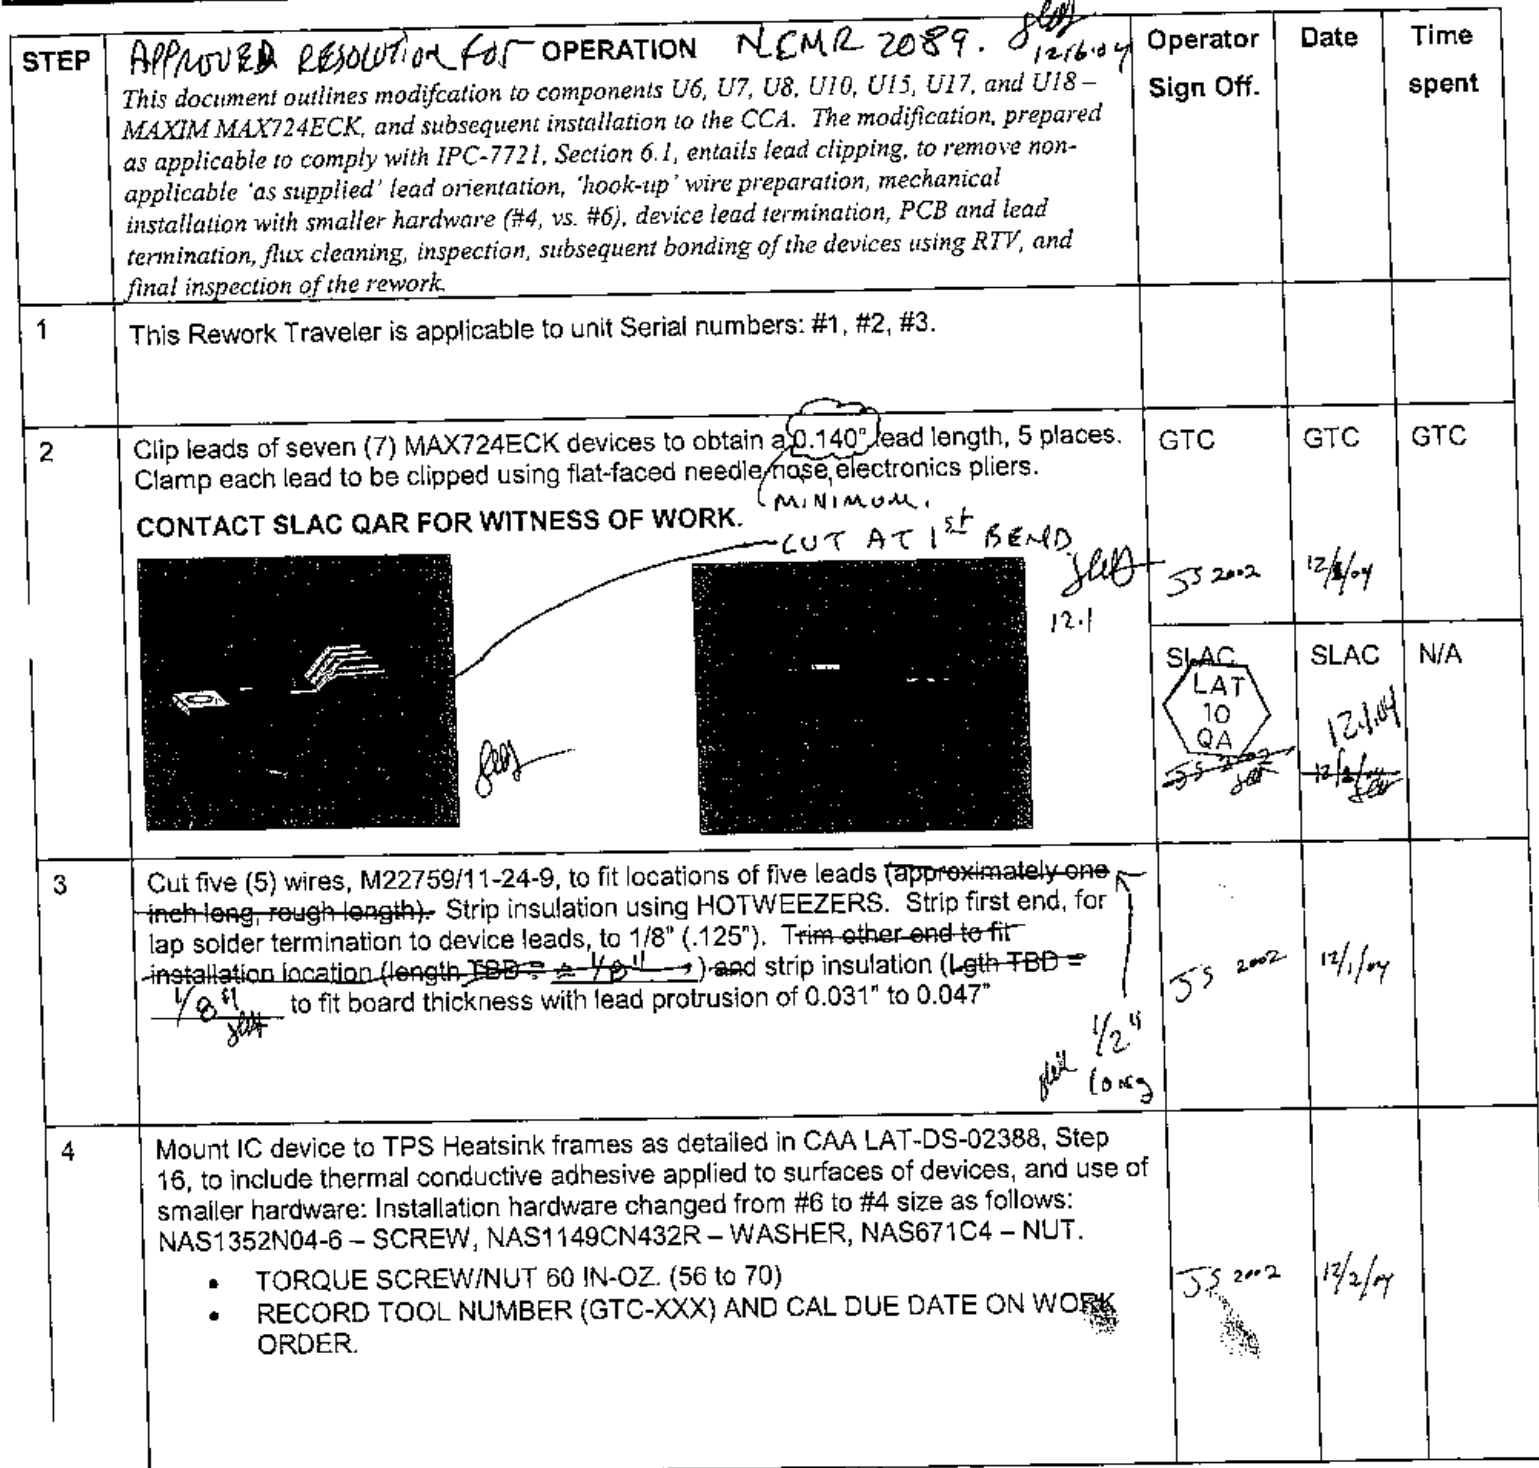 STEP
APPROVED RESOLUTION FOR OPERATION NCMR 2089.
12.16.04
Operator Sign Off.
Date
Time spent
This document outlines modifcation to components U6, U7, U8, U10, U15, U17, and U18 –
MAXIM MAX724ECK, and subsequent installation to the CCA. The modification, prepared
as applicable to comply with IPC-7721, Section 6.1, entails lead clipping, to remove non-
applicable 'as supplied' lead orientation, 'hook-up' wire preparation, mechanical
installation with smaller hardware (#4, vs. #6), device lead termination, PCB and lead
termination, flux cleaning, inspection, subsequent bonding of the devices using RTV, and
final inspection of the rework.
1
This Rework Traveler is applicable to unit Serial numbers: #1, #2, #3.
2
Clip leads of seven (7) MAX724ECK devices to obtain a 0.140" lead length, 5 places.
Clamp each lead to be clipped using flat-faced needle nose electronics pliers.
MINIMUM.
CONTACT SLAC QAR FOR WITNESS OF WORK.
CUT AT 1st BEND
12.1
GTC
GTC
GTC
JS 2002
12/1/04
SLAC
SLAC
N/A
LAT
10
QA
12.1.04
JS 2002
3
Cut five (5) wires, M22759/11-24-9, to fit locations of five leads (approximately one
inch long, rough length). Strip insulation using HOTWEEZERS. Strip first end, for
lap solder termination to device leads, to 1/8" (.125"). Trim other end to fit
installation location (length TBD = 1/8" ) and strip insulation (Lgth TBD =
1/8" to fit board thickness with lead protrusion of 0.031" to 0.047"
1/2"
long
JS 2002
12/1/04
4
Mount IC device to TPS Heatsink frames as detailed in CAA LAT-DS-02388, Step
16, to include thermal conductive adhesive applied to surfaces of devices, and use of
smaller hardware: Installation hardware changed from #6 to #4 size as follows:
NAS1352N04-6 – SCREW, NAS1149CN432R – WASHER, NAS671C4 – NUT.
• TORQUE SCREW/NUT 60 IN-OZ. (56 to 70)
• RECORD TOOL NUMBER (GTC-XXX) AND CAL DUE DATE ON WORK
ORDER.
JS 2002
12/2/04